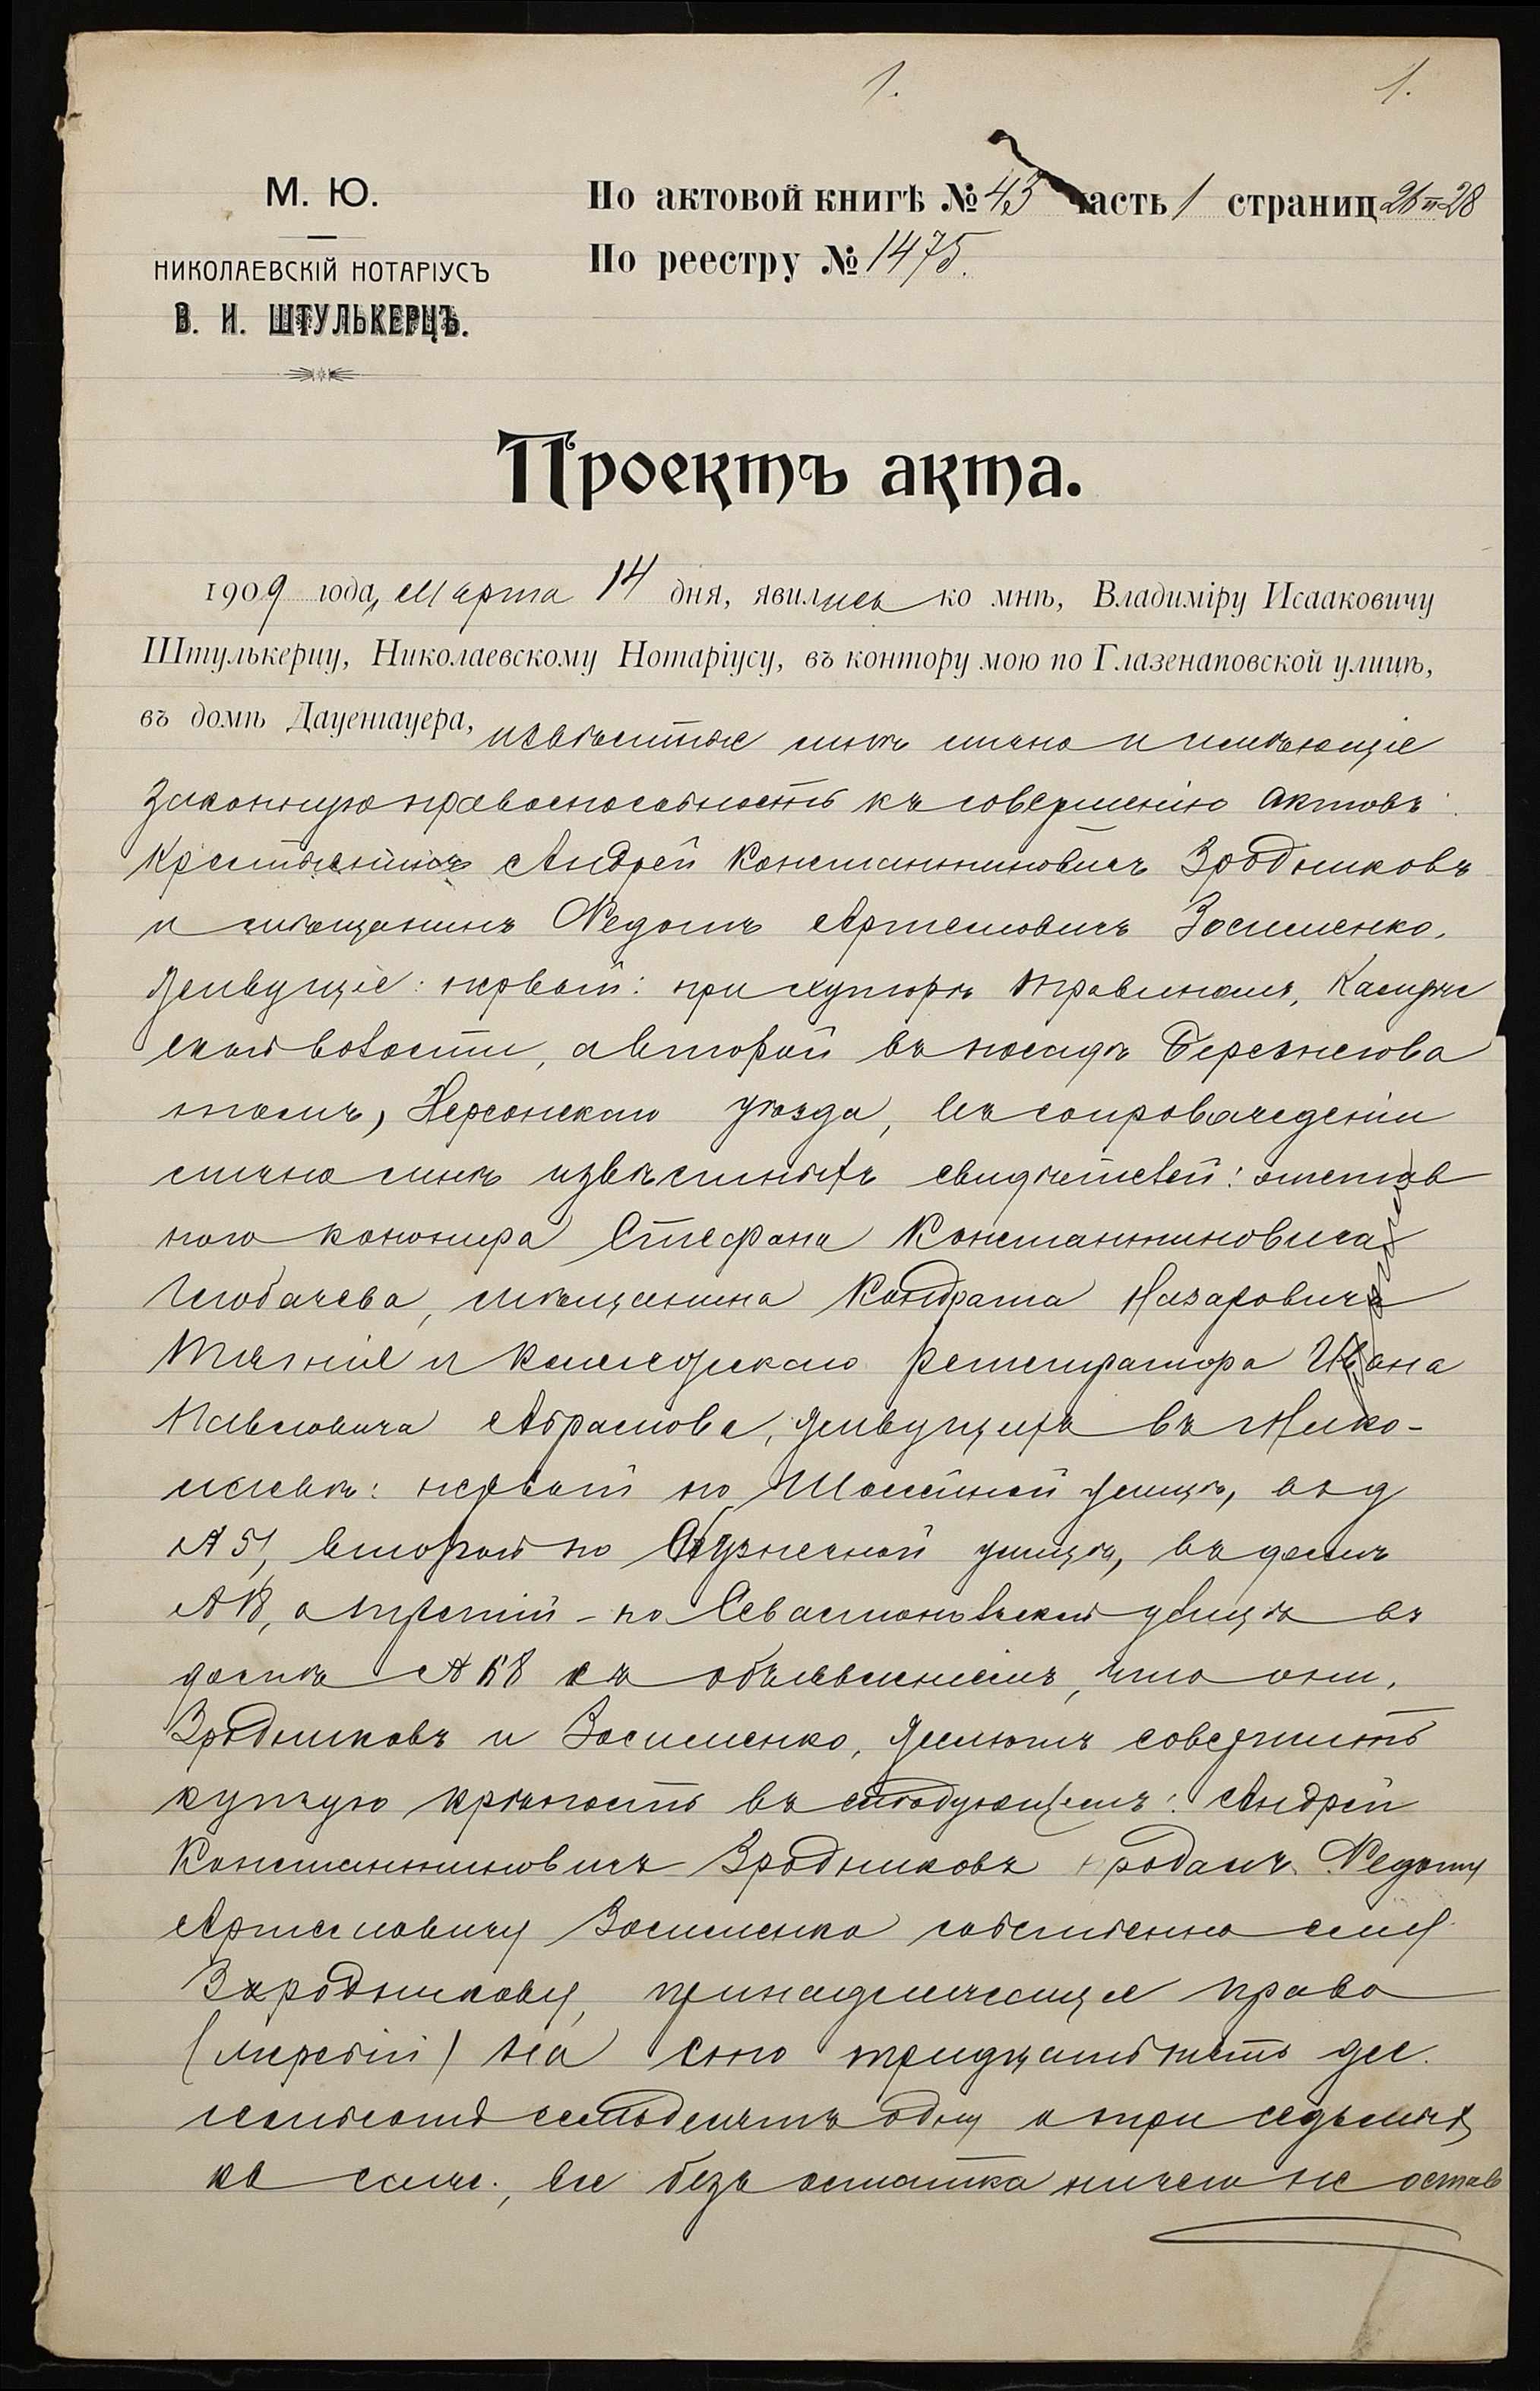 1.
1.
М. Ю.
НИКОЛАЕВСКІЙ НОТАРІУСЪ
В. И. ШТУЛЬКЕРЦЪ.
По актовой книгѣ № 43 часть 1 страниц 26 и 28
По реестру № 1475.
Проектъ акта.
1909 года, Марта 14 дня, явились ко мнѣ, Владиміру Исааковичу
Штулькерцу, Николаевскому Нотаріусу, въ контору мою по Глазенаповской улицѣ,
въ домѣ Дауенгауера, извѣстные мнѣ лично и имѣющіе
законную правоспособность къ совершенію актовъ:
Крестьянинъ Андрей Константиновичъ Зродниковъ
и мѣщанинъ Федотъ Артемовичъ Зосименко,
живущіе: первый: при хуторѣ
ской волости, а второй въ посадѣ Березнегова
томъ, Херсонскаго уѣзда, въ сопровожденіи
лично мнѣ извѣстныхъ свидѣтелей: отстав
ного канонира Стефана Константиновича
мѣщанина Кондрата Назаровича
и Коллежскаго регистратора Ивана
Павловича Абрамова, живущихъ въ Нико-
лаевѣ: первый по улицѣ, въ д
№ 51, второй по Кузнечной улицѣ, въ домѣ
а третій - по Севастопольской улицѣ въ
домѣ № 68 съ объявленіемъ, что они,
Зродниковъ и Зосименко, желаютъ совершить
купчую крѣпость въ слѣдующемъ: Андрей
Константиновичъ Зродниковъ продалъ Федоту
Артемовичу Зосименко собственно ему
Зродникову, принадлежащее право
(жребій) на сто тридцать пять дес.
семьдесятъ одну и три седьмыхъ
кв саж., все безъ остатка ничего не остав